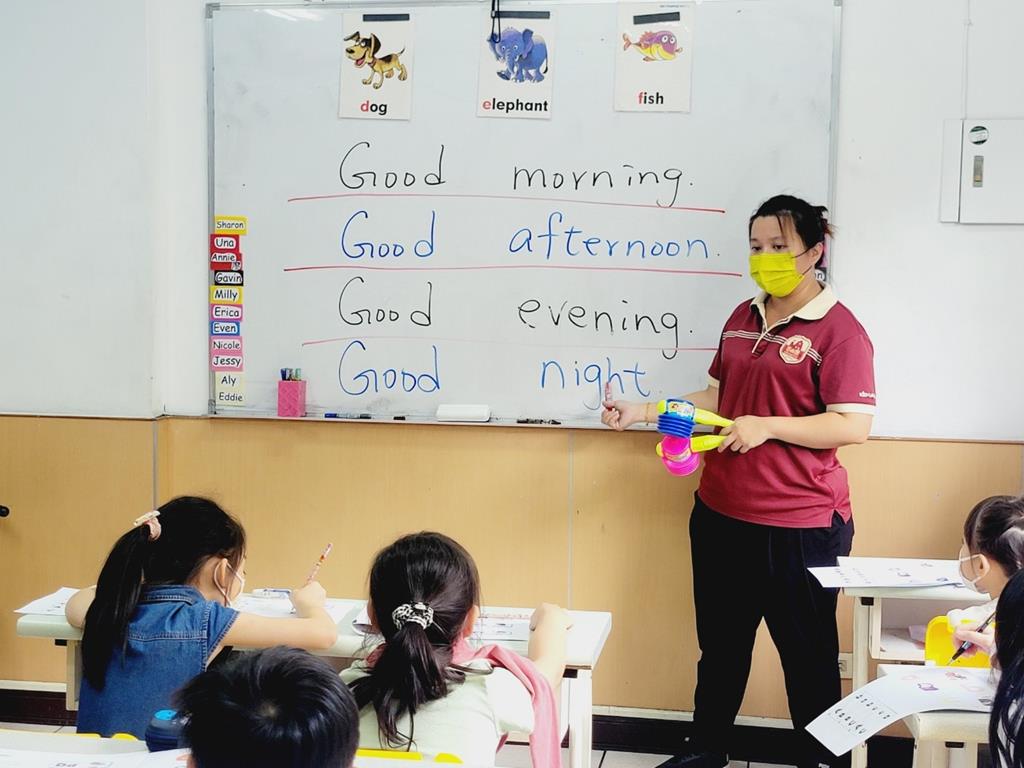 dog
elephant
fish
Good morning.
Good afternoon.
Good evening.
Good night.
Sharon
Una
Annie
Gavin
Milly
Erica
Even
Nicole
Jessy
Aly
Eddie